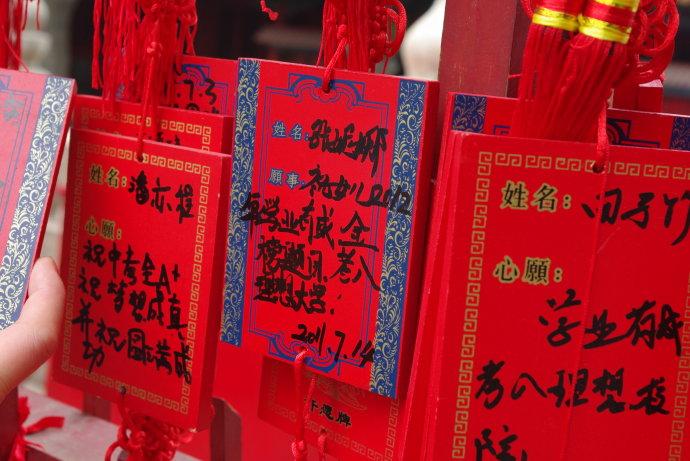 姓名:潘亦挺
心願:
祝中考全A+
祝梦想成真
并祝圆满成
功
姓名:
願事:祝女儿2012
年学业有成金
榜题名考入
理想大学!
2011.7.14
下愿牌
姓名:田子
心願:
学业有成
考入理想校
院